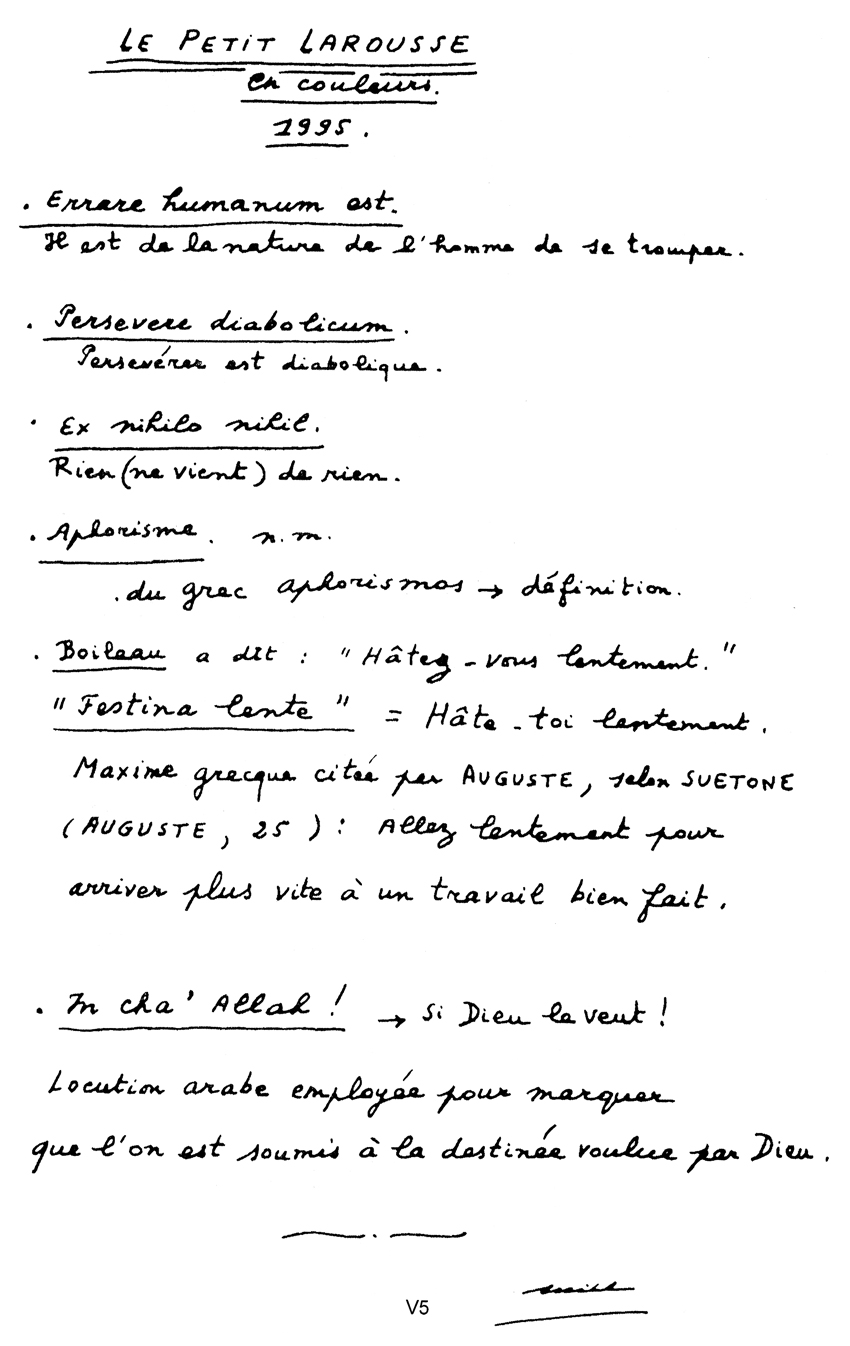 LE PETIT LAROUSSE
en couleurs.
1995.
. Errare humanum est.
Il est de la nature de l'homme de se tromper.
. Persevere diabolicum.
Persevérer est diabolique.
. Ex nihilo nihil.
Rien (ne vient) de rien.
. Aphorisme. n.m.
.du grec aphorismos → définition.
. Boileau a dit : "Hâtez-vous lentement."
"Festina lente" = Hâte-toi lentement.
Maxime grecque citée par AUGUSTE, selon SUETONE
(AUGUSTE, 25) : Allez lentement pour
arriver plus vite à un travail bien fait.
. In cha' Allah ! → Si Dieu le veut !
Locution arabe employée pour marquer
que l'on est soumis à la destinée voulue par Dieu.
V5